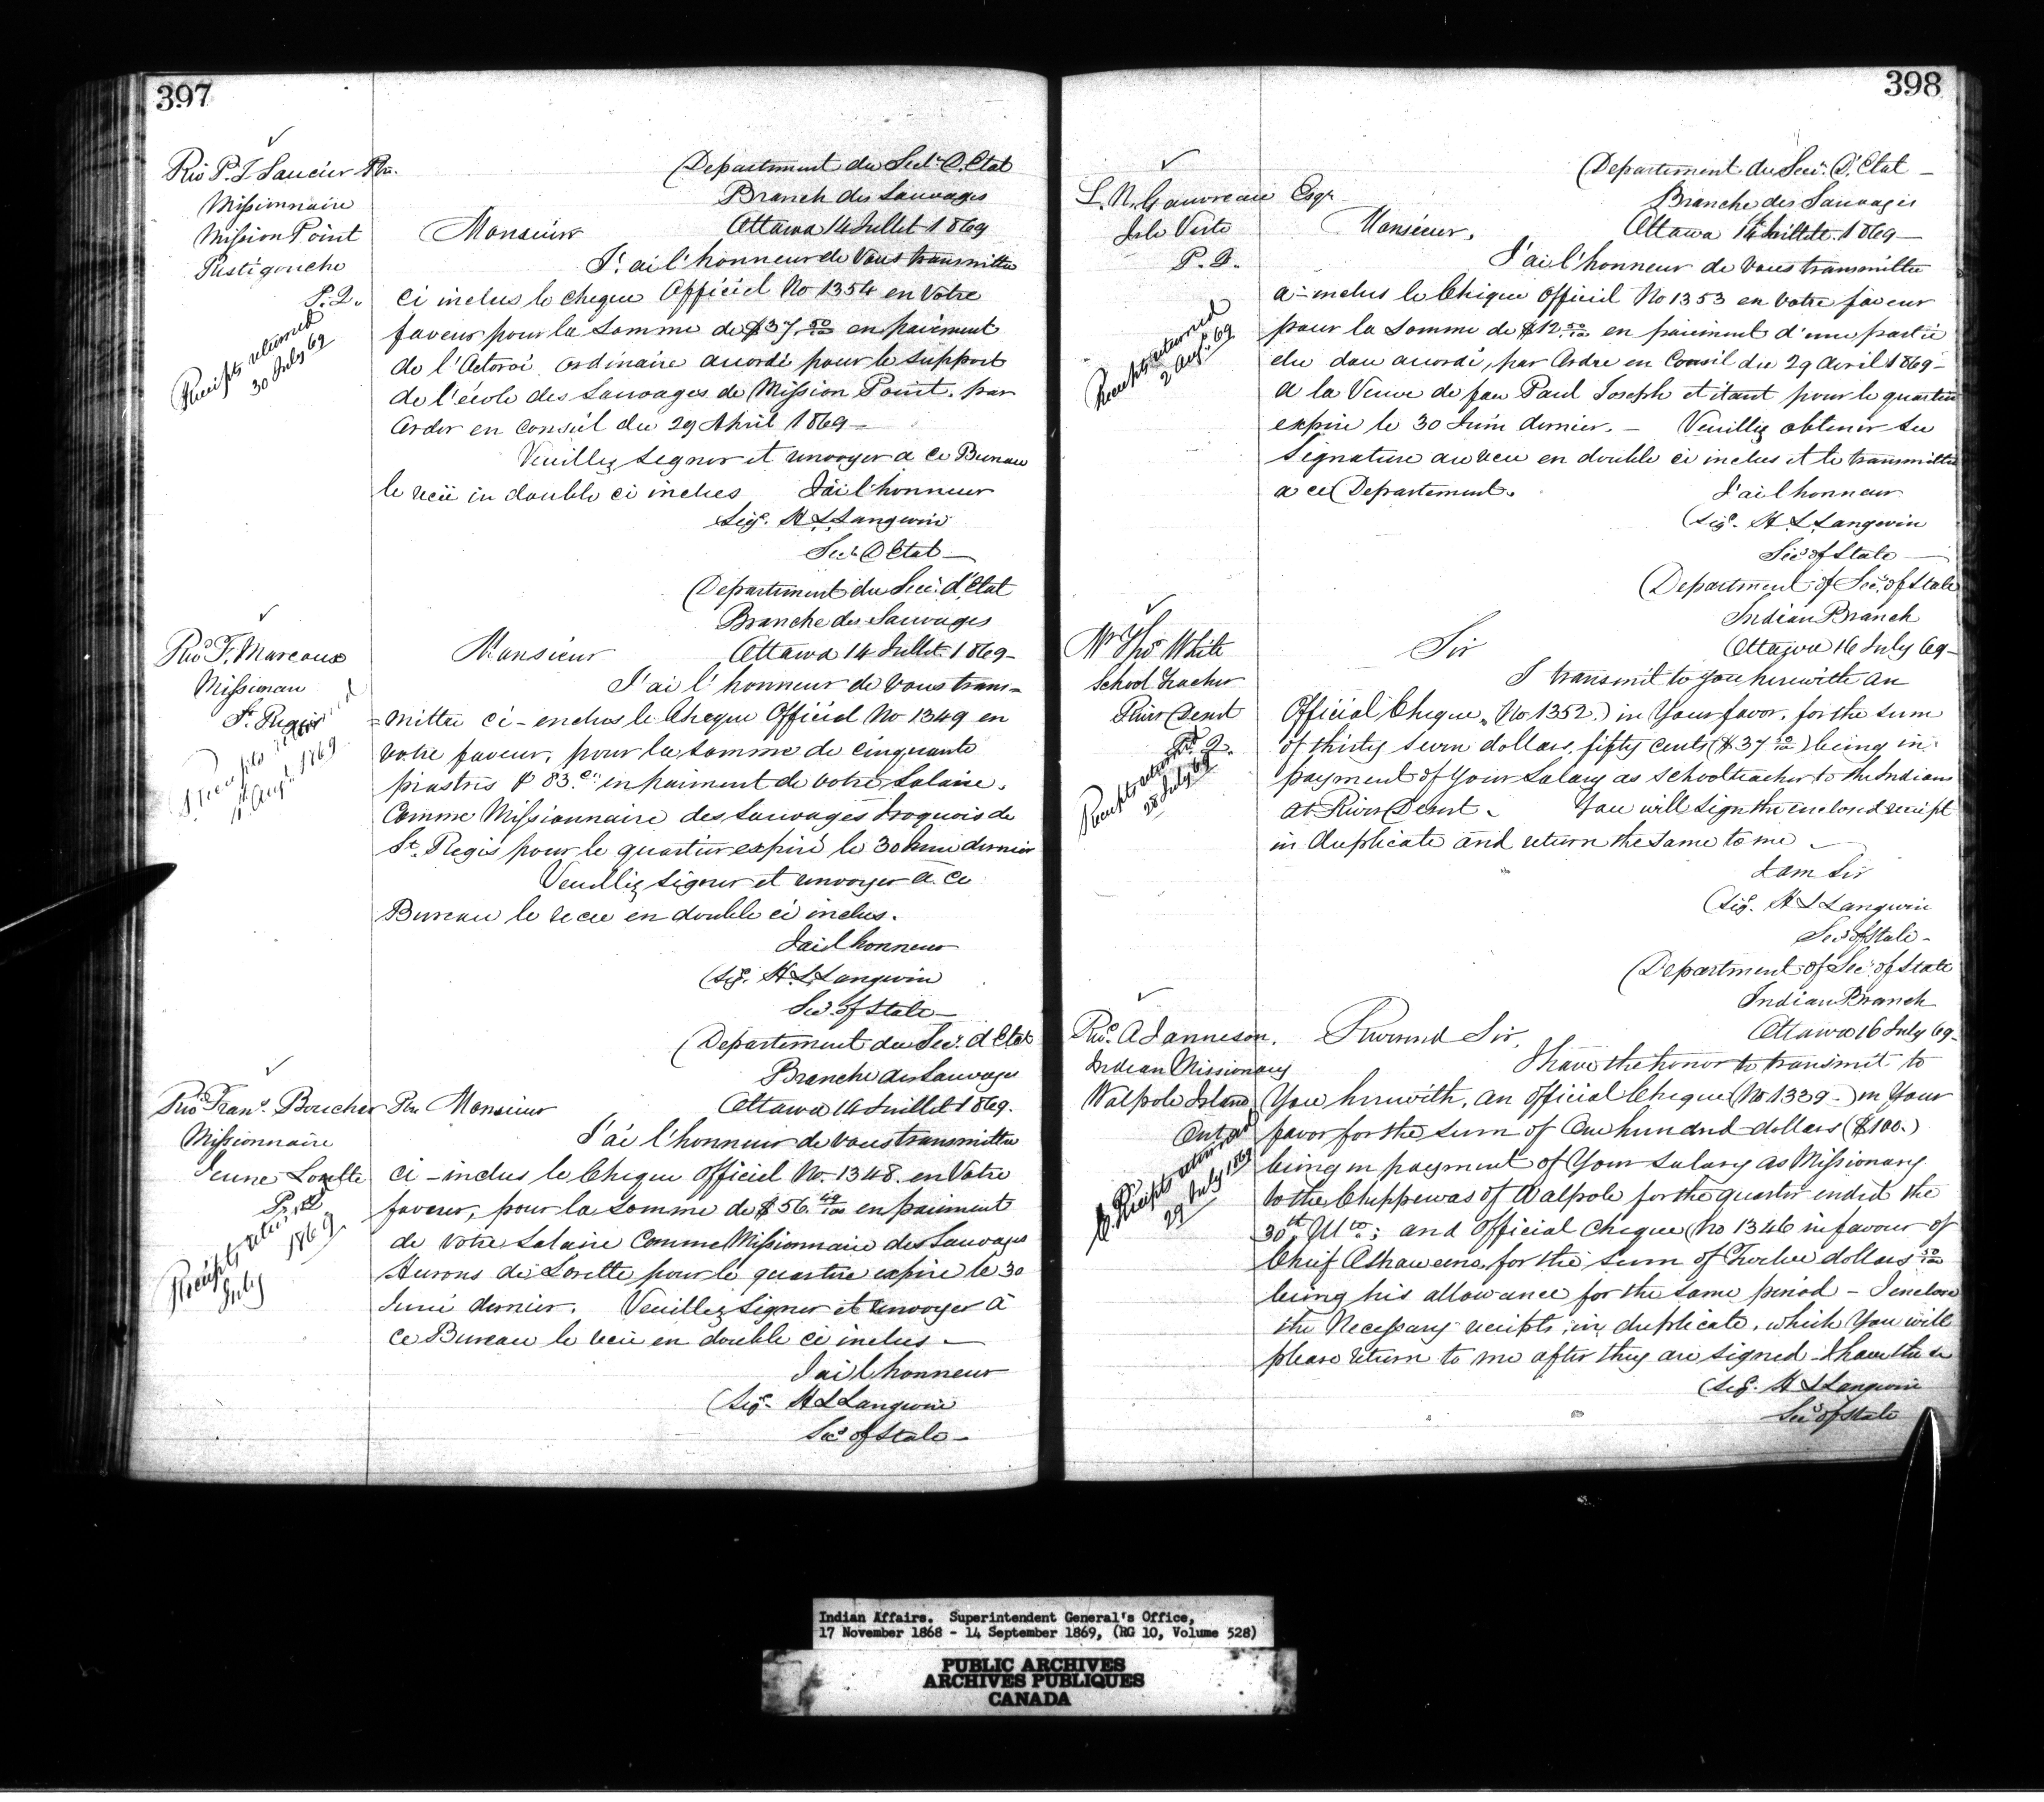 397
Rev P. J Saucier Ptr.
Missionnaire
Mission Point
Ristigouche
P. Q.
Receipts returned
30 July 69
Department du Secr. D. Etat
Branch des Sauvages
Ottawa 14 Juillet 1869
Monsieur
J'. ai l'honneur de Vous transmittre
Ci inclus le cheque Officiel No 1354 en Votre
faveur pour la somme de $37 50/100 en paiement
de l'Octroi ordinaire accordé pour le support
de l'école des Sauvages de Mission Point, par
Order en Conseil du 29 April 1869 —
Veuillez signer et renvoyer a Ce Bureau
le recu in double ci inclus J'ai l'honneur
Sigd. H. L. Langevin
Sec. D Etat —
Department du Secr. d'Etat
Branche des Sauvages
Ottawa 14 Juillet. 1869 —
Revd F. Marcoux
Missionau
St. Regis
Receipts returned
4th Augt. 1869
Monsieur
J'ai l'honneur de vous trans=
=mittre ci-enclus le Cheque Officiel No 1349 en
votre faveur, pour la somme de cinquante
piastres & 83 cts en paiment de votre Salaire.
Comme Missionnaire des Sauvages Iroquois de
St. Regis pour le quartier expiré le 30 June dernier
Veuillez signer et renvoyer a ce
Bureau le recu en double ci inclus.
J'ai l honneur
(Sigd. H. L. Langevin
Sec. of State —
Department du Secr. d Etat
Branche des Sauvages
Ottawa 14 Juillet 1869.
Revd Frans. Boucher Ptr
Missionnaire
Jeune Lorette
P. Q.
Receipts returned
July 1869
Monsieur
J'ai l'honneur de vous transmittre
Ci-inclus le Cheque Officiel No. 1348. en Votre
faveur, pour la somme de $56. 49/100 en paiment
de votre Salaire Comme Missionnaire des Sauvages
Hurons de Lorette pour le quartier expiré le 30
June dernier. Veuillez signer et renvoyer à
Ce Bureau le recu en double ci inclus —
J'ai l honneur
(Sigd. H L Langevin
Sec of State —
398
L. N. Gauvreau Esqr
Isle Verte
P. Q.
Receipts returned
2 Augt. 69
Department du Secr. D'. Etat —
Branche des Sauvages
Ottawa 14 Juillett. 1869 —
Monsieur,
J'ai l'honneur de vous transmittre
a-inclus le Cheque Officiel No 1353 en votre faveur
pour la somme de $12. 50/100 en paiement d'une partie
du don accordé, par Ordre en Conseil du 29 Avril 1869 —
a la Veuve de feu Paul Joseph et étant pour le quartier
expire le 30 Juin dernier. — Veuillez obtenir sa
Signature au recu en double ci inclus et le transmittre
a ce Department.
J'ai l honneur
(Sigd. H L Langevin
Sec of State —
Department of Sec. of State
Indian Branch
Ottawa 16 July 69 —
Mr Thos White
School Teacher
River Desert
P. Q.
Receipts returned
28 July 69
Sir
I transmit to you herewith an
Official Cheque, (No 1352.) in Your favor, for the sum
of thirty seven dollars, fifty cents ($37 50/100) being in
payment of Your Salary as Schoolteacher to the Indians
at River Desert. You will sign the enclosed receipt
in duplicate and return the same to me —
I am Sir
(Sigd. H L Langevin
Sec of State —
Department of Sec. of State
Indian Branch
Ottawa 16 July 69 —
Revd. A Jamieson.
Indian Missionary
Walpole Island
Ont
Receipts returned
29 July 1869
Reverend Sir,
I have the honor to transmit to
You herewith, an official Cheque (No 1339 —) in Your
favor for the sum of One hundred dollars ($100.)
being in payment of Your Salary as Missionary
to the Chippewas of Walpole for the quarter ended the
30th Ulto; and Official Cheque (No 1346 in favour of
Chief for the sum of Twelve dollars 50/100
being his allowance for the same period — I enclose
the Necessary receipts, in duplicate, which You will
please return to me after they are signed — I have the
(Sigd. H L Langevin
Sec of State
Indian Affairs. Superintendent General's Office,
17 November 1868 - 14 September 1869, (RG 10, Volume 528)
PUBLIC ARCHIVES
ARCHIVES PUBLIQUES
CANADA